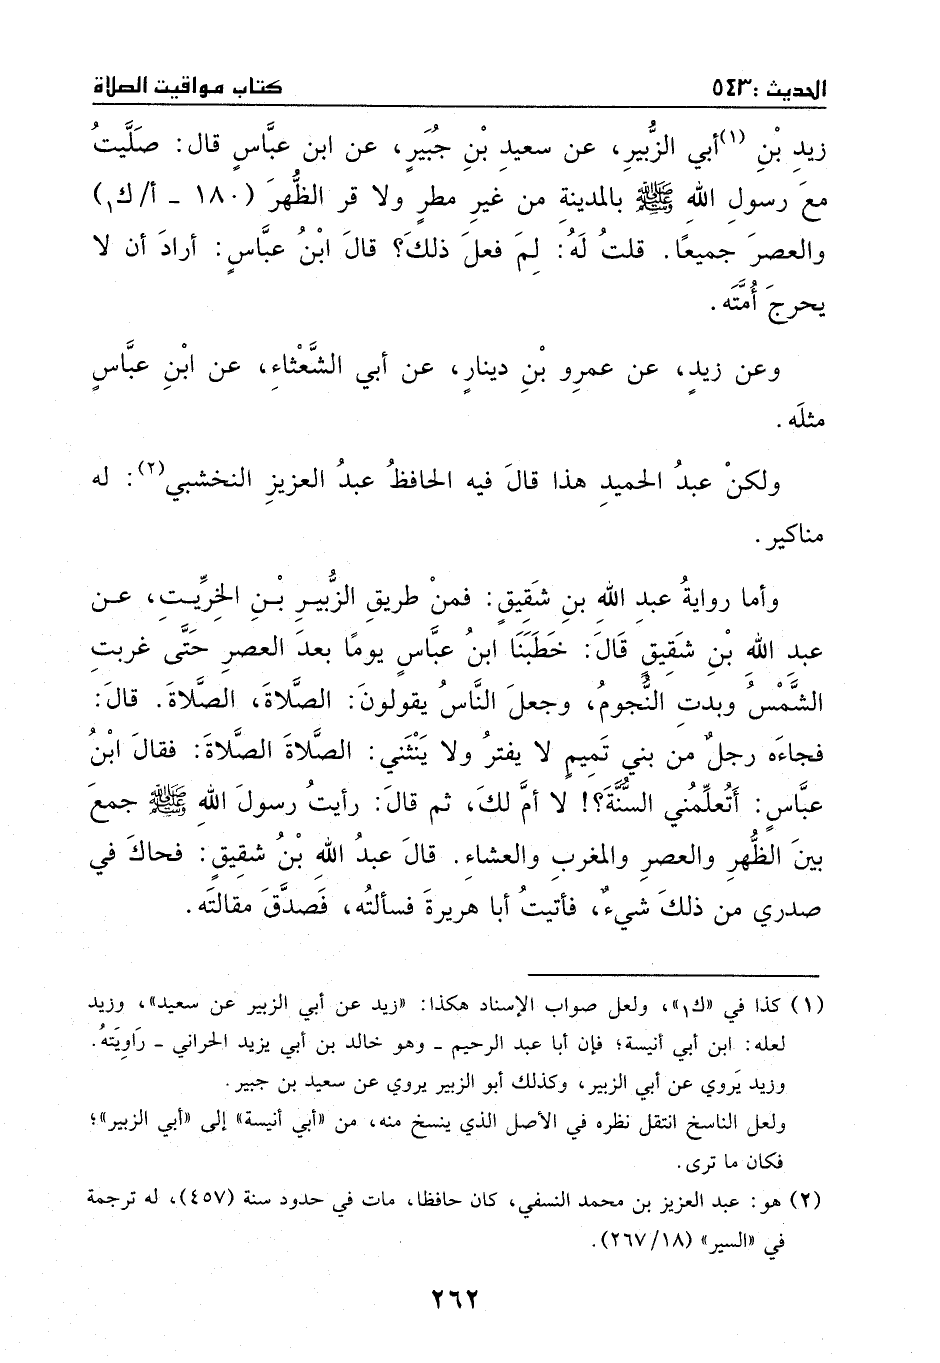 الحديث : ٥٤٣ كتاب مواقيت الصلاة
زيدِ بْنِ (١)أبي الزُّبيرِ، عن سعيدِ بْنِ جُبَيرٍ، عن ابن عبَّاسٍ قال: صَلَّيتُ
معَ رسولِ اللهِ ﷺ بالمدينةِ من غيرِ مطرٍ ولا قر الظُّهرَ (١٨٠ - أ/ ك١)
والعصرَ جميعًا. قلتُ لَهُ: لِمَ فعلَ ذلكَ؟ قالَ ابْنُ عبَّاسٍ: أرادَ أن لا
يحرجَ أُمَّتَه.
وعن زيدٍ، عن عمرِو بْنِ دينارٍ، عن أبي الشَّعْثاءِ، عن ابْنِ عبَّاسٍ
مثلَه.
ولكنْ عبدُ الحميدِ هذا قالَ فيه الحافظُ عبدُ العزيزِ النخشبي(٢): له
مناكير.
وأما روايةُ عبدِ اللهِ بنِ شَقِيقٍ: فمنْ طريقِ الزُّبيرِ بْنِ الخِرِّيتِ، عن
عبدِ اللهِ بْنِ شقيقٍ قَالَ: خَطَبَنَا ابنُ عبَّاسٍ يومًا بعدَ العصرِ حَتَّى غربتِ
الشَّمْسُ وبدتِ النُّجومُ، وجعلَ النَّاسُ يقولونَ: الصَّلاةَ، الصَّلاةَ. قالَ:
فجاءَه رجلٌ من بني تَميمٍ لا يفترُ ولا يَنْثَني: الصَّلاةَ الصَّلاةَ: فقالَ ابْنُ
عبَّاسٍ: أَتُعلِّمُني السُّنَّةَ؟! لا أمَّ لكَ، ثم قالَ: رأيتُ رسولَ اللهِ ﷺ جمعَ
بينَ الظُّهرِ والعصرِ والمغربِ والعشاءِ. قالَ عبدُ اللهِ بْنُ شقيقٍ: فحاكَ في
صدري من ذلكَ شيءٌ، فأتيتُ أبا هريرةَ فسألتُه، فَصدَّقَ مقالتَه.
(١) كذا في «ك١»، ولعل صواب الإسناد هكذا: «زيد عن أبي الزبير عن سعيد»، وزيد
لعله: ابن أبي أنيسة؛ فإن أبا عبد الرحيم - وهو خالد بن أبي يزيد الحراني - رَاوِيَتهُ.
وزيد يَروي عن أبي الزبير، وكذلك أبو الزبير يروي عن سعيد بن جبير.
ولعل الناسخ انتقل نظره في الأصل الذي ينسخ منه، من «أبي أنيسة» إلى «أبي الزبير»؛
فكان ما ترى.
(٢) هو: عبد العزيز بن محمد النسفي، كان حافظا، مات في حدود سنة (٤٥٧)، له ترجمة
في «السير» (١٨/ ٢٦٧).
٢٦٢